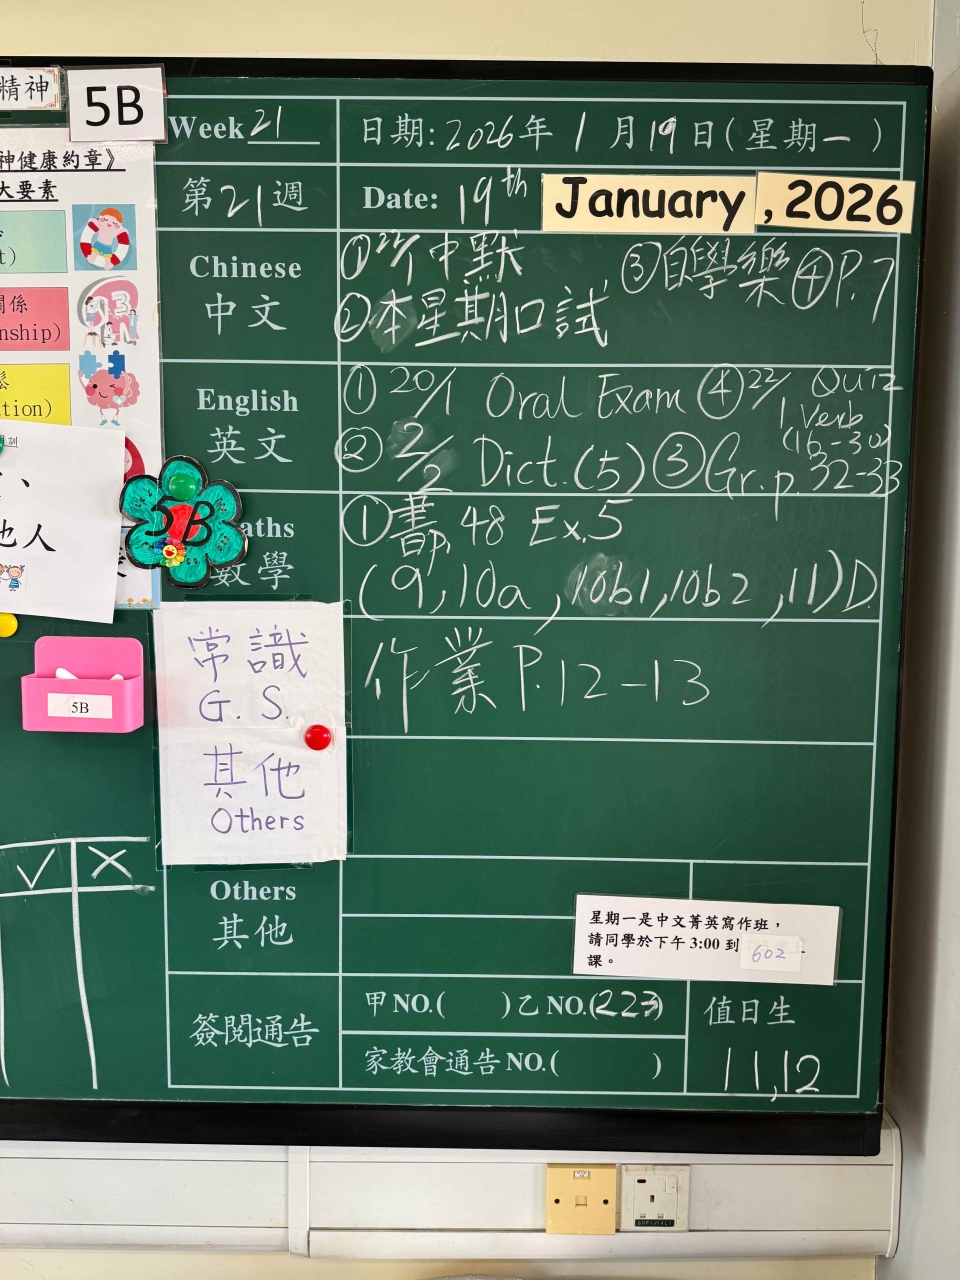 精神
5B
神健康約章》
大要素
t)
關係
nship)
ation)
他人
5B
5B
Week 21
日期: 2026年 1 月 19 日 ( 星期一 )
第 21 週
Date: 19th January , 2026
Chinese
中文
① 22/1 中默 ③ 自學樂 ④ P.7
② 本星期口試
English
英文
① 20/1 Oral Exam ④ 22/1 Quiz
Verb
(16-30)
② 2/2 Dict. (5) ③ Gr. p. 32-33
aths
數學
① 書 p. 48 Ex. 5
(9, 10a, 10b1, 10b2, 11) D.
常識
G. S.
作業 P. 12-13
其他
Others
Others
其他
星期一是中文菁英寫作班，
請同學於下午 3:00 到 602
課。
簽閱通告
甲 NO.( ) 乙 NO.(223)
家教會通告 NO.( )
值日生
11, 12